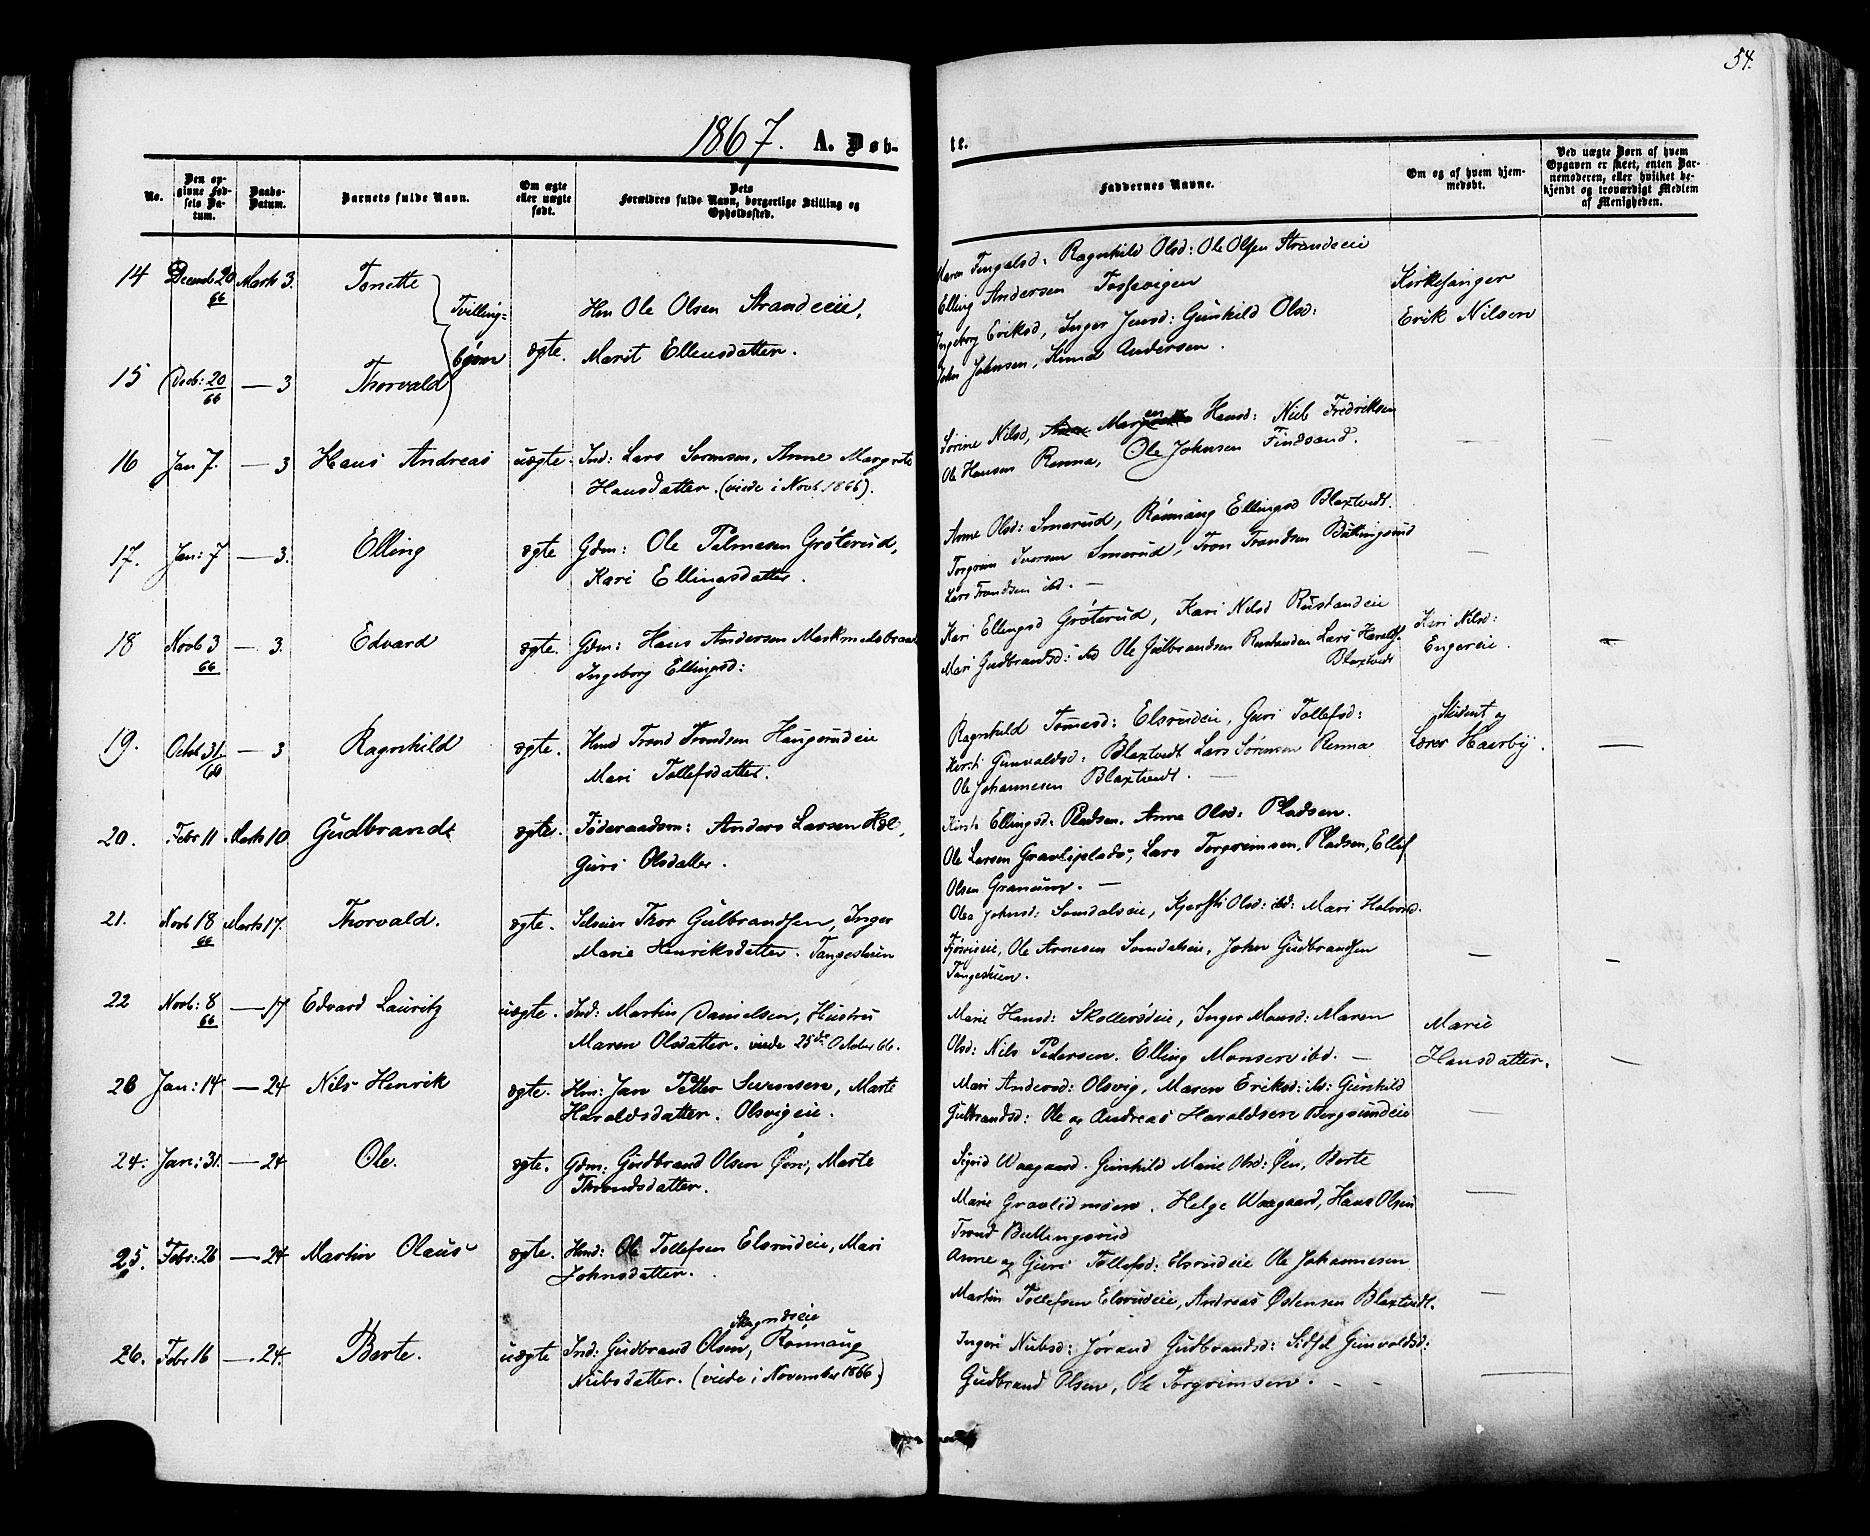 54.
1867. A. Døb-
te.
No.
Den opgivne Fødsels Datum.
Daabs-Datum.
Barnets fulde Navn.
Om ægte eller uægte født.
Dets Forældres fulde Navn, borgerlige Stilling og Opholdssted.
Faddernes Navne.
Om og af hvem hjemmedøbt.
Ved uægte Børn af hvem Opgaven er skeet, enten Barnemoderen, eller hvilket bekjendt og troværdigt Medlem af Menigheden.
14 Decemb 20/66 Marts 3. Tonette
Tvilling-
børn
Hm Ole Olsen Strandeie,
ægte. Marit Ellensdatter.
15 Decb: 20/66 — 3 Thorvald
Maren Olsd: Ragnhild Olsd: Ole Olsen Strandeie
Elling Andersen Tossevigen
Ingeborg Eriksd, Inger Jensd: Gunhild Olsd:
John Johnsen, Knud Andersen.
Kirkesanger
Erik Nilsen
16 Jan 7. — 3 Hans Andreas uægte. Ind: Lars Sørensen, Anne Margrete
Hansdatter. (viede i Novb. 1866).
Sørine Nilsd, Maren Hansd: Niels Fredriksen
Ole Hansen Renna, Ole Johnsen Findsand.
17. Jan: 7 — 3. Elling ægte Gdm: Ole Tolmesen Gröterud,
Kari Ellingsdatter.
Anne Olsd: Smerud, Rönnaug Ellingsd Blaxtvedt.
Torgrim Iversen Smerud, Tron Trondsen Buttingsrud
Lars Trondsen ibd. —
18 Novb 3/66 — 3. Edvard ægte. Gdm: Hans Andersen Markmedsbraat
Ingeborg Ellingsd:
Kari Ellingsd Gröterud, Kari Nilsd Rustandeie
Mari Gudbrandsd: Ole Gulbrandsen Rustanden Lars Haralds.
Blaxtvedt
Kari Nilsd:
Engereie.
19. Octob 31/66 — 3 Ragnhild ægte. Hmd Trond Trondsen Haugerudeie
Mari Tollefsdatter.
Ragnhild Tomesd: Elsrudeie, Guri Tollefsd:
Kersti Gunvaldsd: Blaxtvedt Lars Sørensen Renna
Ole Johannesen Blaxtvedt. —
Student og
Lærer Haarby.
20. Febr 11 Marts 10 Gudbrand ægte. Føderaadsm: Anders Larsen Hol,
Guri Olsdatter.
Kirsti Ellingsd: Pladsen. Anne Olsd: Pladsen.
Ole Larsen, Lars Torgrimsen, Pladsen, Ellef
Olsen Granum. —
21. Novb 18/66 Marts 17. Thorvald. ægte. Selveier Thor Gulbrandsen, Inger
Marie Henriksdatter. Tangestuen
Olea Johnsd: Somdalseie, Kjersti Olsd: ibd: Mari Halvorsd.
Ole Arnesen Somdalseie, John Gudbrandsen
Tangestuen.
22 Novb: 8/66 — 17 Edvard Lauritz uægte. Ind: Martin Danielsen, Hustru
Maren Olsdatter. viede 25de October 66.
Marie Hansd: Skollerudeie, Inger Monsd: Maren
Olsd: Nils Pedersen. Elling Monsen ibd. —
Marie
Hansdatter.
23 Jan: 14 — 24 Nils Henrik ægte. Hm: Jan Petter Svensen, Marte
Haraldsdatter. Olsvigeie.
Mari Andersd: Olsvig, Maren Eriksd: ibd: Gunhild
Gulbrandsd: Ole og Andreas Haraldsen Bergsundeie
24. Jan: 31. — 24 Ole. ægte. Gdm: Gudbrand Olsen Øen, Marte
Throndsdatter.
Sigrid Waagaard. Gunhild Marie Olsd: Øen, Berte
Marie Gravlidmoen. Helge Waagaard, Hans Olsen
Trond Buttingsrud
25. Febr: 26 — 24 Martin Olaus ægte. Hmd: Ole Tollefsen Elsrudeie, Mari
Johnsdatter.
Anne og Guri Tollefsd: Elsrudeie Ole Johannesen
Martin Tollefsen Elsrudeie, Andreas Østensen Blaxtvedt.
26. Febr 16 — 24. Berte. uægte Ind: Gudbrand Olsen, Rønnaug
Nubsdatter. (viede i November 1866.)
Ingeri Nubsd: Jørand Gudbrandsd: Sidsel Gunvaldsd:
Gudbrand Olsen, Ole Torgrimsen.